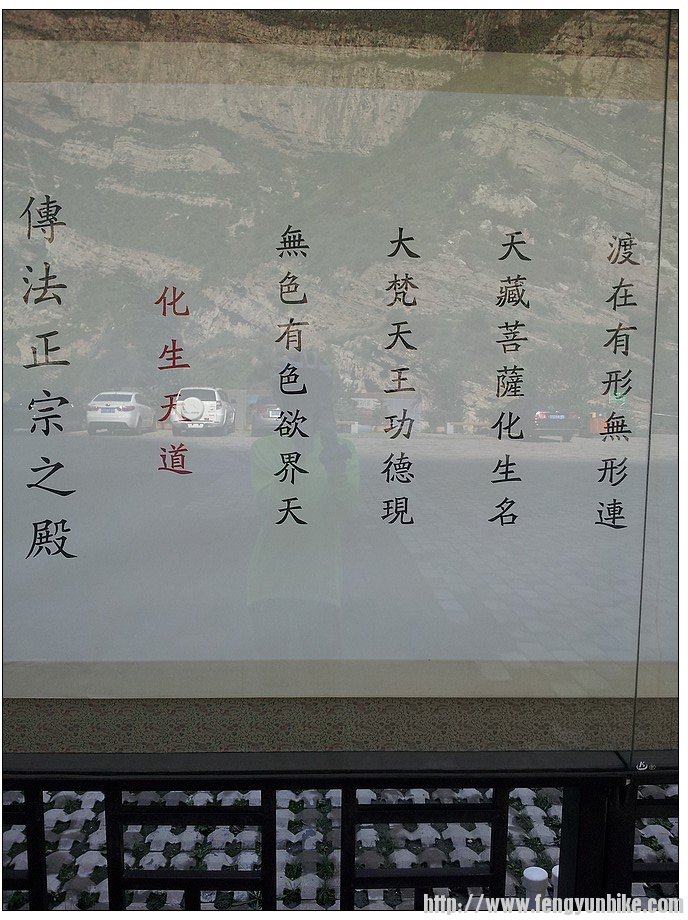 渡在有形無形連
天藏菩薩化生名
大梵天王功德現
無色有色欲界天
化生天道
傳法正宗之殿
http://www.fengyunhike.com